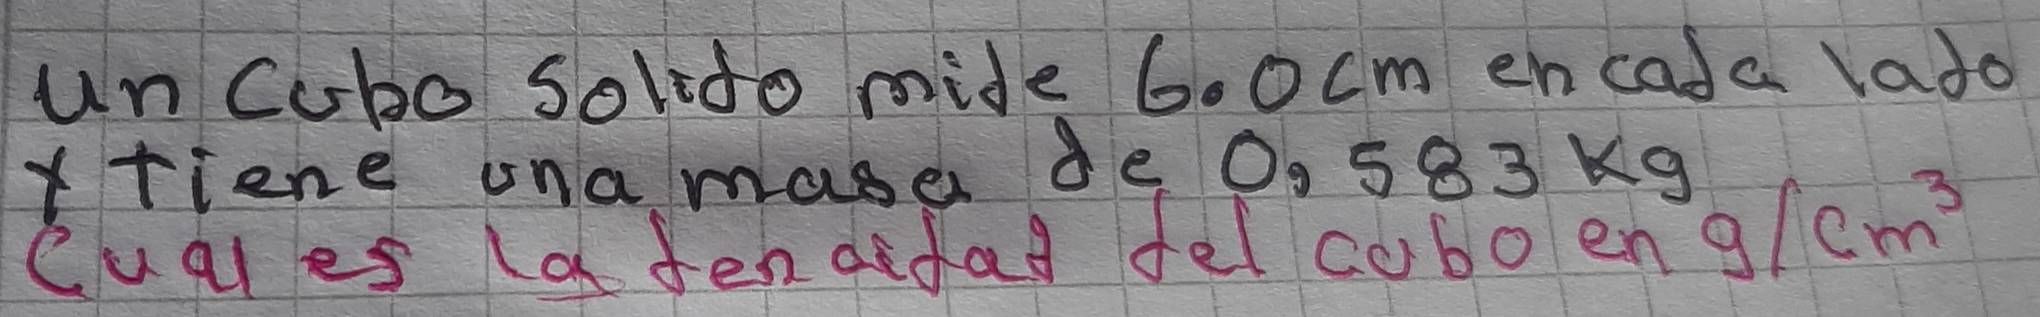 un cubo solido mide 6.0cm en cada lado
y tiene una masa de 0,583 Kg
Cual es la densidad del cubo en g/cm³